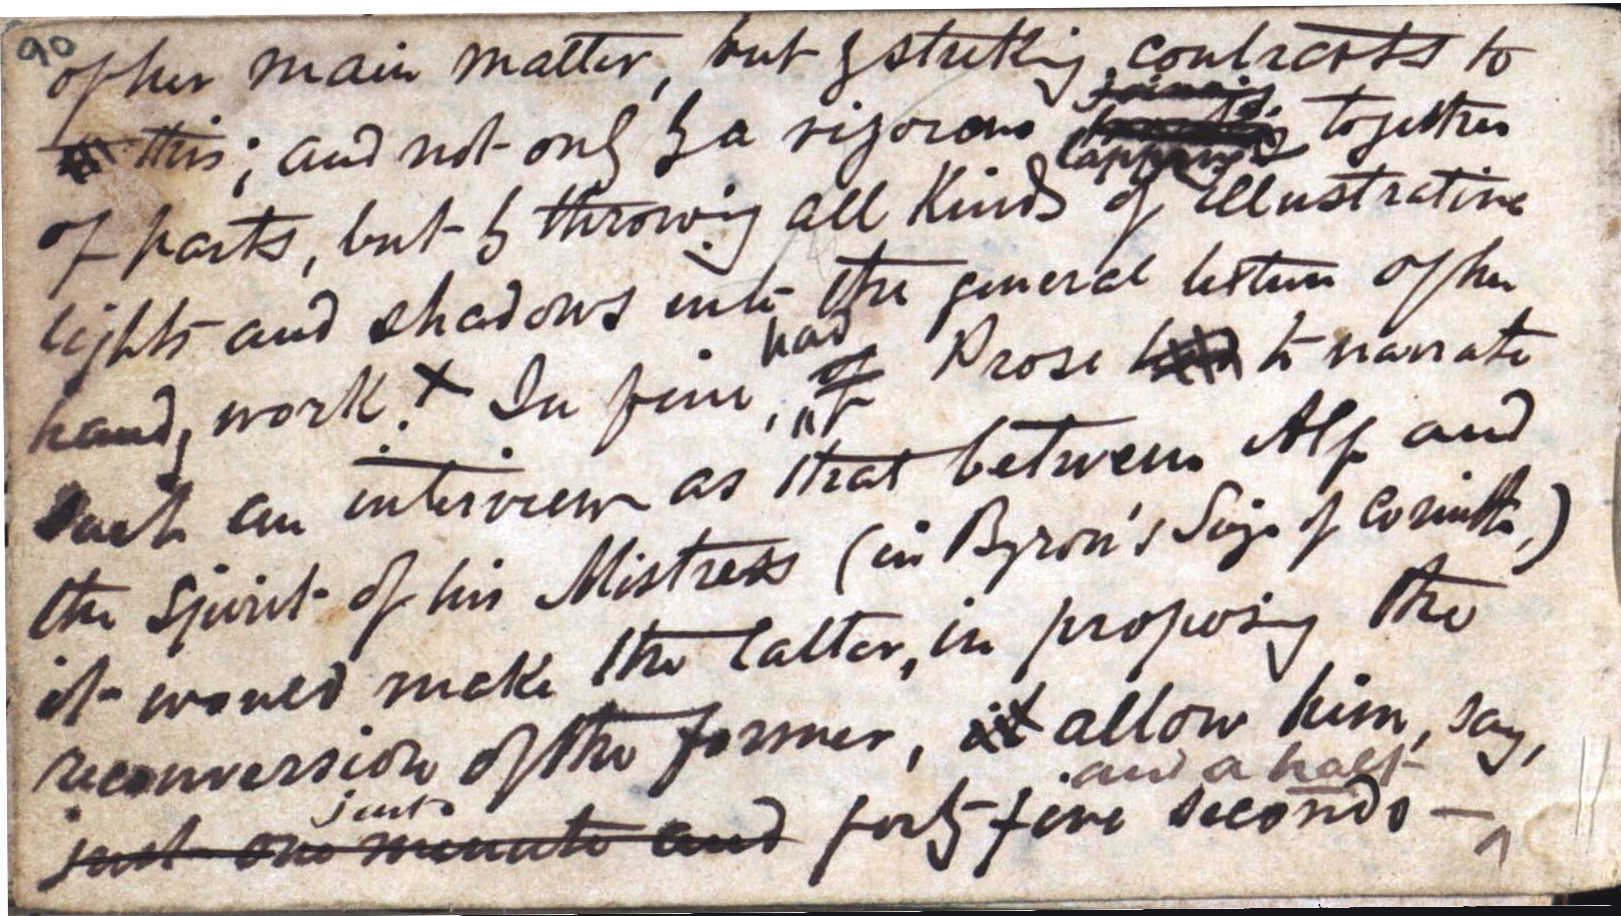 90
of her main matter, but by striking contrasts to
this; and not only by a vigorous lapping together
of parts, but by throwing all kinds of illustrative
lights and shadows into the general texture of her
had
handywork. x In fine, if Prose had to narrate
such an interview as that between Alp and
the Spirit of his Mistress (in Byron's Siege of Corinth,)
it would make the latter, in proposing the
reconversion of the former, it allow him, say,
and a half
just
just one minute and forty-five seconds —